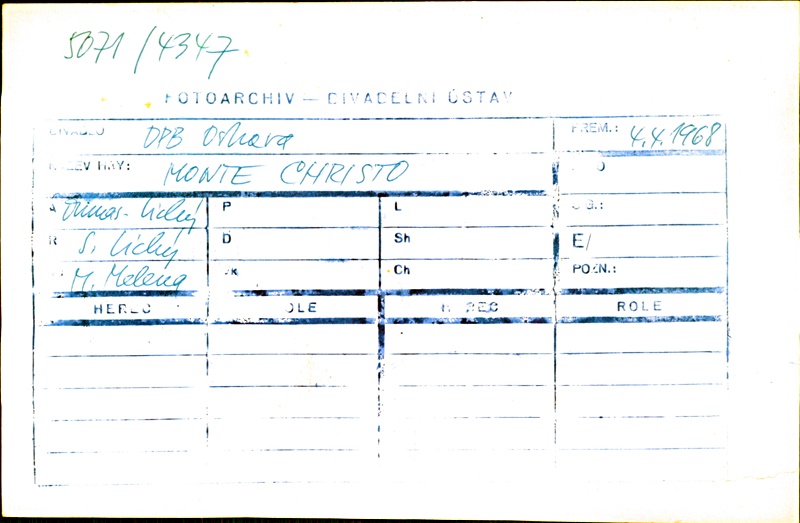 5071/4347
FOTOARCHIV — DIVADELNÍ ÚSTAV
DIVADLO DPB Ostrava PREM.: 4.4.1968
NÁZEV HRY: MONTE CHRISTO
A Dumas - Lichý P L
R S. Lichý D Sh E/
M. Melena Ch POZN.:
HEREC ROLE HEREC ROLE